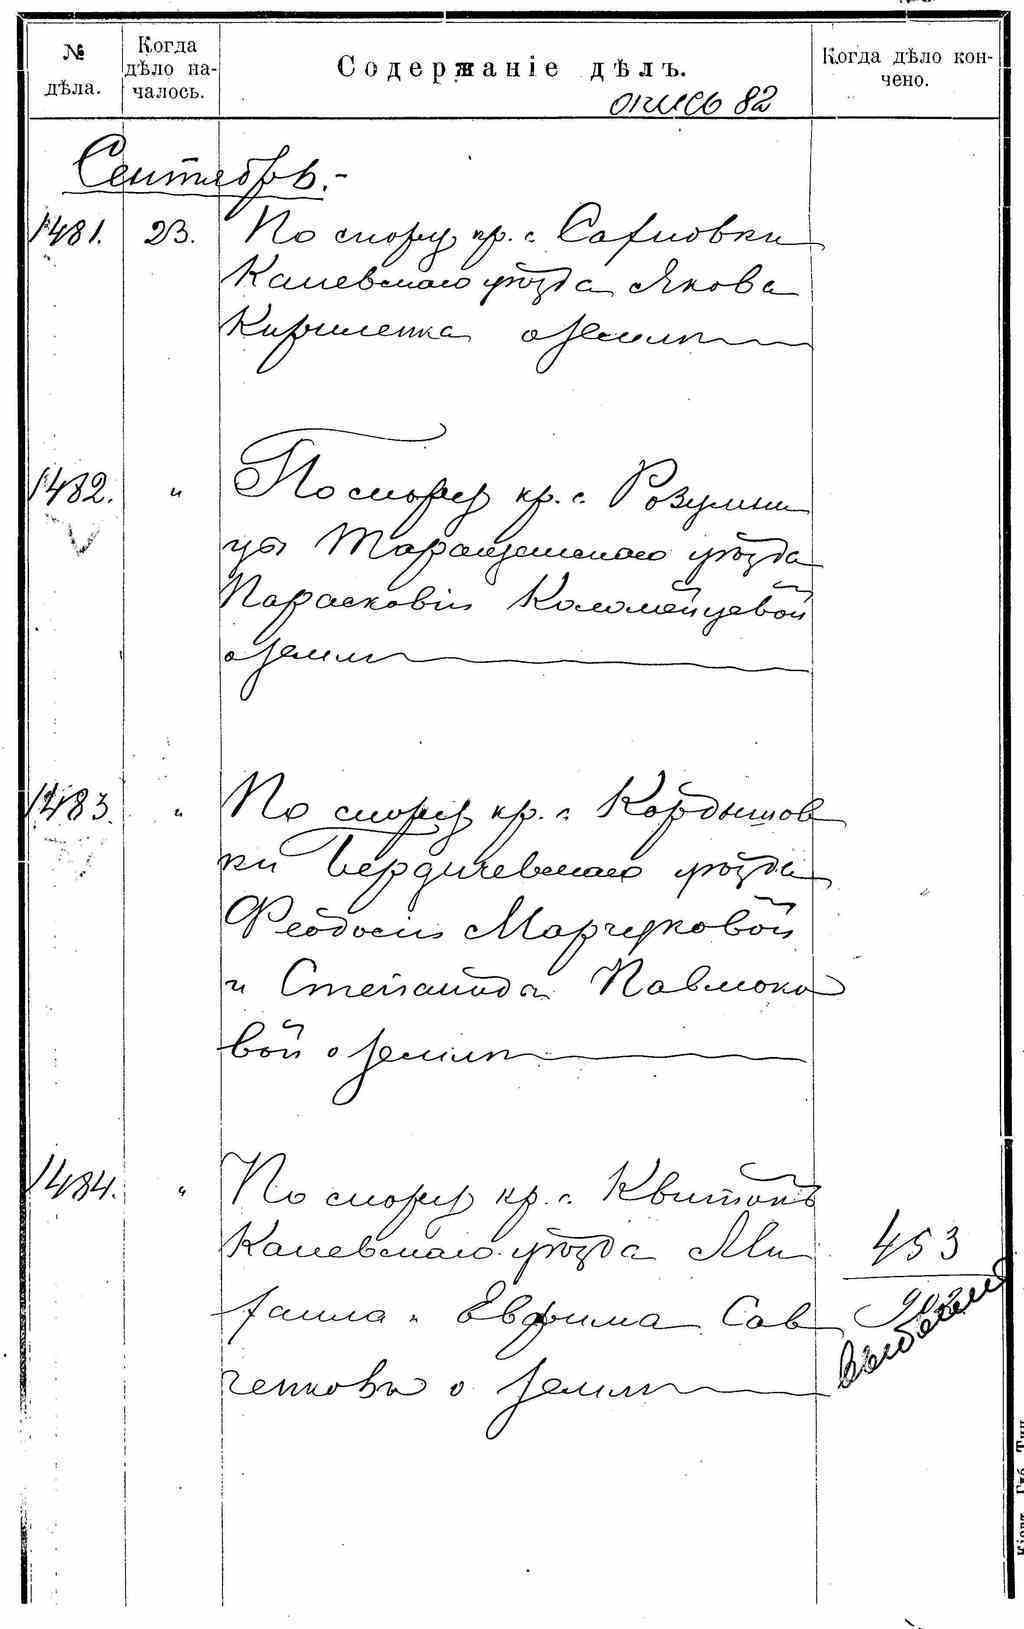 № дѣла.
Когда дѣло на-
чалось.
Содержаніе дѣлъ.
Когда дѣло кон-
чено.
опись 82
Сентябрь.-
1481. 23. По спору кр. с. Сахновки
Каневскаго уѣзда Якова
Кириленка о землѣ
1482. " По спору кр. с. Розумни
цы Таращанскаго уѣзда
Парасковіи Коломейцевой
о землѣ
1483. " По спору кр. с. Кордышов
ки Бердичевскаго уѣзда
Феодосіи Марчуковой
и Степаниды Павлюко
вой о землѣ
1484. " По спору кр. с. Квитокъ
Каневскаго уѣзда Ми
хаила и Евфима Сав
ченковъ о землѣ
453
902
выбыли
Кіевъ. Губ. Тип.